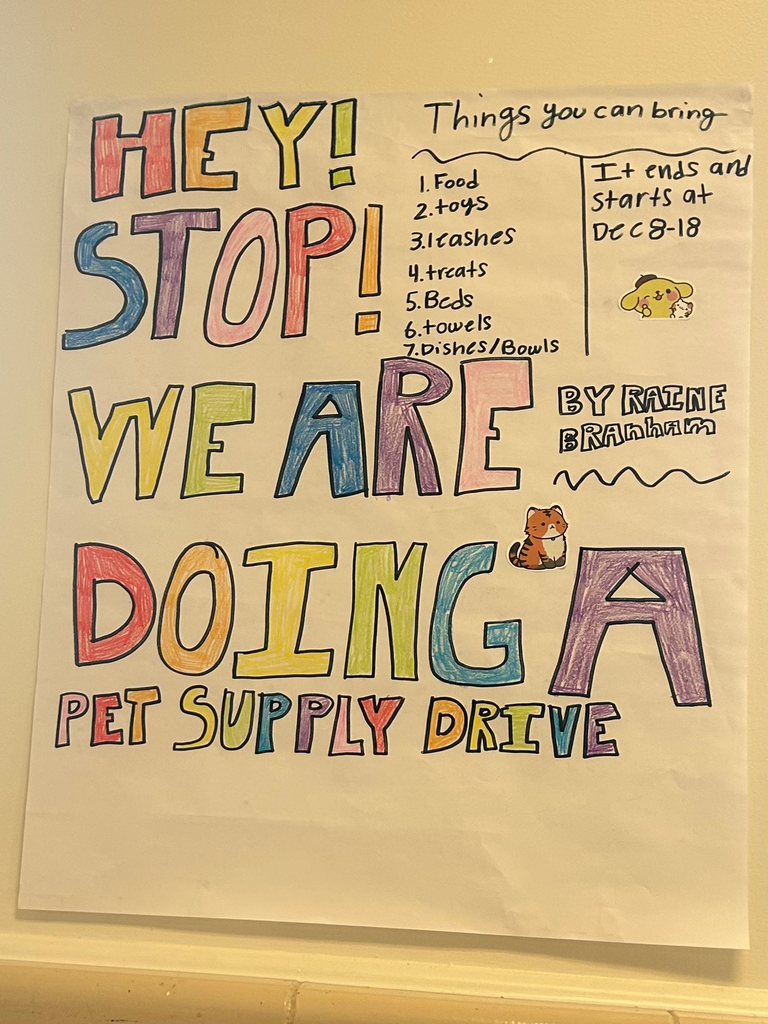 HEY!
STOP!
WE ARE
DOING A
PET SUPPLY DRIVE
Things you can bring
1. Food
2. toys
3. leashes
4. treats
5. Beds
6. towels
7. Dishes/Bowls
It ends and
starts at
Dec 8-18
BY RAINE
BRAnham